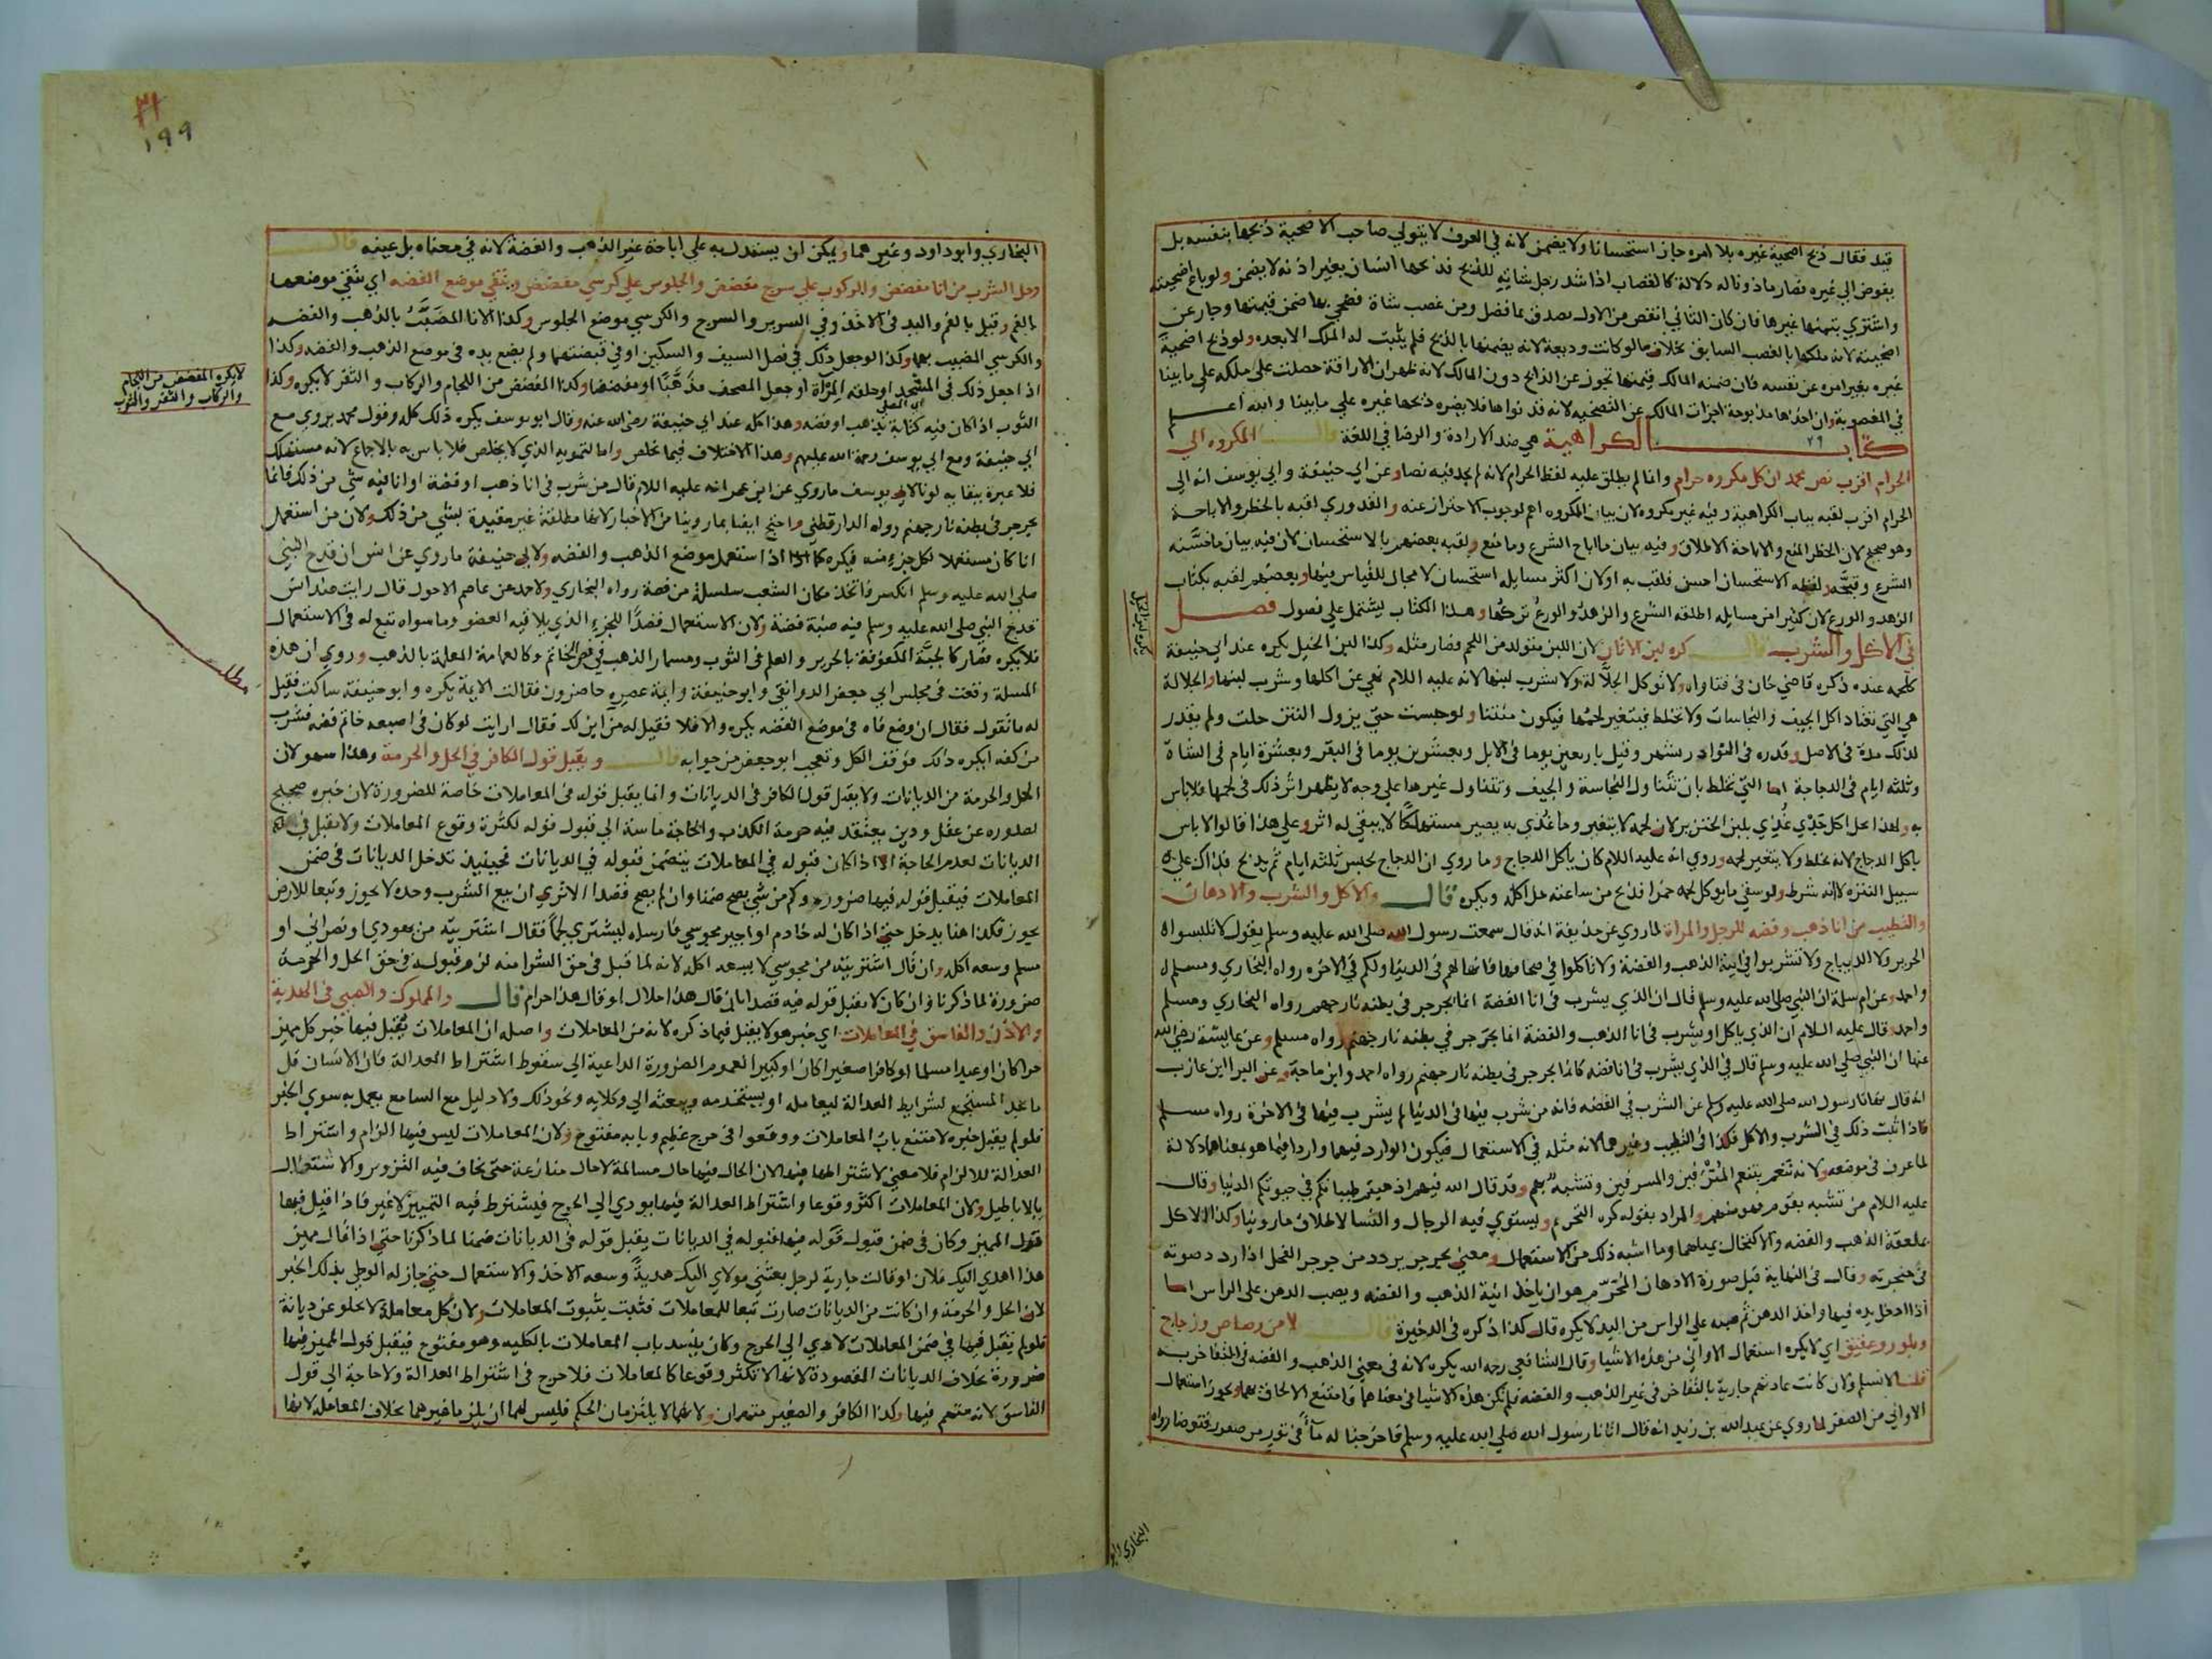 قيد فقال ذبح اضحية غيره بلا امره جاز استحسانا ولا يضمن لانه في العرف لا يتولي صاحب الاضحية ذبحها بنفسه بل
يفوض الي غيره فصار ماذونا له دلالة كالقصاب اذا شد رجل شاته للذبح فذبحها انسان بغير اذنه لا يضمن ولو باع اضحيته
واشتري بثمنها غيرها فان كان الثاني انقص من الاول تصدق بما فضل ومن غصب شاة فضحي بها ضمن قيمتها وجاز عن
اضحيته لانه ملكها بالغصب السابق بخلاف ما لو كانت وديعة لانه يضمنها بالذبح فلم يثبت له الملك الا بعده ولو ذبح اضحية
غيره بغير امره عن نفسه فان ضمنه المالك قيمتها تجوز عن الذابح دون المالك لانه ظهر ان الاراقة حصلت علي ملكه علي ما بينا
في المغصوبة وان اخذها مذبوحة اجزات المالك عن التضحية لانه قد نواها فلا يضره ذبحها غيره علي ما بينا والله اعلم
كتاب الكراهية هي ضد الارادة والرضا في اللغة قال المكروه الي
الحرام اقرب نص محمد ان كل مكروه حرام وانما لم يطلق عليه لفظ الحرام لانه لم يجد فيه نصا وعن ابي حنيفة وابي يوسف انه الي
الحرام اقرب لقبه بباب الكراهية وفيه غير مكروه لان بيان المكروه اهم لوجوب الاحتراز عنه والقدوري لقبه بالحظر والاباحة
وهو صحيح لان الحظر المنع والاباحة الاطلاق وفيه بيان ما اباح الشرع وما منع ولقبه بعضهم بالاستحسان لان فيه بيان ما حسنه
الشرع وقبحه ولفظه الاستحسان احسن فلقب به او لان اكثر مسايله استحسان لا مجال للقياس فيها وبعضهم لقبه بكتاب
الزهد والورع لان كثيرا من مسايله اطلقه الشرع والزهد والورع تركها وهذا الكتاب يشتمل علي فصول فصل
في الاكل والشرب قال كره لبن الاتان لان اللبن متولد من اللحم فصار مثله وكذا لبن الخيل يكره عند ابي حنيفة
كلحمه عنده ذكره قاضي خان في فتاواه ولا توكل الجلالة ولا تشرب لبنها لانه عليه السلام نهي عن اكلها وشرب لبنها والجلالة
هي التي تعتاد اكل الجيف والنجاسات ولا تخلط فيتغير لحمها فيكون منتنا ولو حبست حتي يزول النتن حلت ولم يقدر
لذلك مدة في الاصل وقدره في النوادر بشهر وقيل باربعين يوما في الابل وبعشرين يوما في البقر وبعشرة ايام في الشاة
وثلثة ايام في الدجاجة اما التي تخلط بان تتناول النجاسة والجيف وتتناول غيرها علي وجه لا يظهر اثر ذلك في لحمها فلا باس
به ولهذا حل اكل جدي غذي بلبن الخنزير لان لحمه لا يتغير وما غذي به يصير مستهلكا لا يبقي له اثر وعلي هذا قالوا لا باس
باكل الدجاج لانه يخلط ولا يتغير لحمه وروي انه عليه السلام كان ياكل الدجاج وما روي ان الدجاج تحبس ثلثة ايام ثم يذبح فذاك علي
سبيل التنزه لا انه شرط ولو سقي ما يوكل لحمه خمرا فذبح من ساعته حل اكله ويكره قال والاكل والشرب والادهان
والتطيب من انا ذهب وفضة للرجل والمراة لما روي عن حذيفة انه قال سمعت رسول الله صلي الله عليه وسلم يقول لا تلبسوا
الحرير ولا الديباج ولا تشربوا في انية الذهب والفضة ولا تاكلوا في صحافها فانها لهم في الدنيا ولكم في الاخره رواه البخاري ومسلم
واحمد وعن ام سلمة ان النبي صلي الله عليه وسلم قال ان الذي يشرب في انا الفضة انما يجرجر في بطنه نار جهنم رواه البخاري ومسلم
واحمد وقال عليه السلام ان الذي ياكل او يشرب في انا الذهب والفضة انما يجرجر في بطنه نار جهنم رواه مسلم وعن عايشة رضي الله
عنها ان النبي صلي الله عليه وسلم قال في الذي يشرب في انا فضه كانما يجرجر في بطنه نار جهنم رواه احمد وابن ماجة وعن البرا ابن عازب
انه قال نهانا رسول الله صلي الله عليه وسلم عن الشرب في الفضه فانه من شرب فيها في الدنيا لم يشرب فيها في الاخرة رواه مسلم
فاذا ثبت ذلك في الشرب والاكل فكذا في التطيب وغيرهما لانه مثله في الاستعمال فيكون الوارد فيهما واردا فيما هو بمعناهما دلالة
لما عرف في موضعه ولانه تنعم بتنعم المترفين والمسرفين وتشبه بهم وقد قال الله فيهم اذهبتم طيباتكم في حيوتكم الدنيا وقال
عليه السلام من تشبه بقوم فهو منهم والمراد بقوله كره التحريم ويستوي فيه الرجال والنسا لاطلاق ما روينا وكذا الاكل
بملعقة الذهب والفضه والاكتحال بميلهما وما اشبه ذلك من الاستعمال ومعني يجرجر يردد من جرجر الفحل اذا ردد صوته
في حنجرته وقال في النهاية قيل صورة الادهان المحرم هو ان ياخذ انية الذهب والفضه ويصب الدهن علي الراس اما
اذا ادخل يده فيها واخذ الدهن ثم صبه علي الراس من اليد لا يكره قال كذا ذكره في الذخيرة قال لا من رصاص وزجاج
وبلور وعقيق اي لا يكره استعمال الاواني من هذه الاشيا وقال الشافعي رحمه الله يكره لانه في معني الذهب والفضه في التفاخر به
قلنا لا نسلم ولان كانت عادتهم جارية بالتفاخر في غير الذهب والفضه فلم تكن هذه الاشيا في معناهما فامتنع الالحاق بهما ويجوز استعمال
الاواني من الصفر لما روي عن عبد الله بن زيد انه قال اتانا رسول الله صلي الله عليه وسلم فاخرجنا له مآ في تور من صفر فتوضا رواه
البخاري
٣١
١٩٩
البخاري وابو داود وغيرهما ويمكن ان يستدل به علي اباحة غير الذهب والفضة لانه في معناه بل عينه قال
وحل الشرب من انا مفضض والركوب علي سرج مفضض والجلوس علي كرسي مفضض ويتقي موضع الفضه اي يتقي موضعها
بالفم وقيل بالفم واليد في الاخذ وفي السرير والسرج والكرسي موضع الجلوس وكذا الانا المضبب بالذهب والفضه
والكرسي المضبب بهما وكذا لو جعل ذلك في نصل السيف والسكين او في قبضتهما ولم يضع يده في موضع الذهب والفضه وكذا
اذا جعل ذلك في المسجد او حلقه المرآة او جعل المصحف مذهبا او مفضضا وكذا المفضض من اللجام والركاب والثفر لا يكره وكذا
الثوب اذا كان فيه كتابة بذهب او فضه وهذا كله عند ابي حنيفة رضي الله عنه وقال ابو يوسف يكره ذلك كله وقول محمد يروي مع
ابي حنيفة ومع ابي يوسف رحمة الله عليهم وهذا الاختلاف فيما يخلص واما التمويه الذي لا يخلص فلا باس به بالاجماع لانه مستهلك
فلا عبرة ببقايه لونا لابي يوسف ما روي عن ابن عمر انه عليه السلام قال من شرب في انا ذهب او فضة او انا فيه شي من ذلك فانما
يجرجر في بطنه نار جهنم رواه الدارقطني واحتج ايضا بما روينا من الاخبار لانها مطلقة غير مقيدة بشي من ذلك ولان من استعمل
انا كان مستعملا لكل جزء منه فيكره كما اذا استعمل موضع الذهب والفضه ولابي حنيفة ما روي عن انس ان قدح النبي
صلي الله عليه وسلم انكسر فاتخذ مكان الشعب سلسلة من فضة رواه البخاري ولاحمد عن عاصم الاحول قال رايت عند انس
قدح النبي صلي الله عليه وسلم فيه ضبة فضة ولان الاستعمال قصدا للجزء الذي يلاقيه العضو وما سواه تبع له في الاستعمال
فلا يكره فصار كالجبة المكفوفة بالحرير والعلم في الثوب ومسمار الذهب في فص الخاتم وكالعمامة المعلمة بالذهب وروي ان هذه
المسلة وقعت في مجلس ابي جعفر الدوانقي وابو حنيفة وايمة عصره حاضرون فقالت الايمة يكره وابو حنيفة ساكت فقيل
له ما تقول فقال ان وضع فاه في موضع الفضه يكره والا فلا فقيل له من اين لك فقال ارايت لو كان في اصبعه خاتم فضه فشرب
من كفه ايكره ذلك فوقف الكل وتعجب ابو جعفر من جوابه قال ويقبل قول الكافر في الحل والحرمة وهذا سهو لان
الحل والحرمة من الديانات ولا يقبل قول الكافر في الديانات وانما يقبل قوله في المعاملات خاصة للضرورة لان خبره صحيح
لصدوره عن عقل ودين يعتقد فيه حرمة الكذب والحاجة ماسة الي قبول قوله لكثرة وقوع المعاملات ولا يقبل في
الديانات لعدم الحاجة الا اذا كان قبوله في المعاملات يتضمن قبوله في الديانات فحينيذ تدخل الديانات في ضمن
المعاملات فيقبل قوله فيها ضرورة وكم من شي يصح ضمنا وان لم يصح قصدا الا تري ان بيع الشرب وحده لا يجوز وتبعا للارض
يجوز فكذا هنا يدخل حتي اذا كان له خادم او اجير مجوسي فارسله ليشتري لحما فقال اشتريته من يهودي او نصراني او
مسلم وسعه اكله وان قال اشتريته من مجوسي لا يسعه اكله لانه لما قبل في حق الشرا منه لزم قبوله في حق الحل والحرمة
ضرورة لما ذكرنا وان كان لا يقبل قوله فيه قصدا بان قال هذا حلال او قال هذا حرام قال والمملوك والصبي في الهدية
والاذن والفاسق في المعاملات اي خبر هولا يقبل فيما ذكره لانه من المعاملات واصله ان المعاملات يقبل فيها خبر كل مميز
حرا كان او عبدا مسلما او كافرا صغيرا كان او كبيرا لعموم الضرورة الداعية الي سقوط اشتراط العدالة فان الانسان قل
ما يجد المستجمع لشرايط العدالة ليعامله او يستخدمه ويبعثه الي وكلايه ونحو ذلك ولا دليل مع السامع يعمل به سوي الخبر
فلو لم يقبل خبره لامتنع باب المعاملات ووقعوا في حرج عظيم وبابه مفتوح ولان المعاملات ليس فيها الزام واشتراط
العدالة للالزام فلا معني لاشتراطها فيها لان الحال فيها حال مسالمة لا حال منازعة حتي يخاف فيه التزوير والاشتغال
بالاباطيل ولان المعاملات اكثر وقوعا واشتراط العدالة فيها يودي الي الحرج فيشترط فيه التمييز لا غير فاذا قبل فيها
قول المميز وكان في ضمن قبول قوله فيها قبوله في الديانات يقبل قوله في الديانات ضمنا لما ذكرنا حتي اذا قال مميز
هذا اهدي اليك فلان او قالت جارية لرجل بعثني مولاي اليك هدية وسعه الاخذ والاستعمال حتي جاز له الوطي بذلك الخبر
لان الحل والحرمة وان كانت من الديانات صارت تبعا للمعاملات فتثبت بثبوت المعاملات ولان كل معاملة لا يخلو عن ديانة
فلو لم يقبل فيها في ضمن المعاملات لادي الي الحرج وكان ينسد باب المعاملات بالكليه وهو مفتوح فيقبل قول المميز فيها
ضرورة بخلاف الديانات المقصودة لانها لا تكثر وقوعا كالمعاملات فلا حرج في اشتراط العدالة ولا حاجة الي قول
الفاسق لانه متهم فيها وكذا الكافر والصغير متهمان ولانهما لا يلتزمان الحكم فليس لهما ان يلزما غيرهما بخلاف المعامله لانها
لا يكره المفضض من اللجام
والركاب والثفر والثوب
مطلب